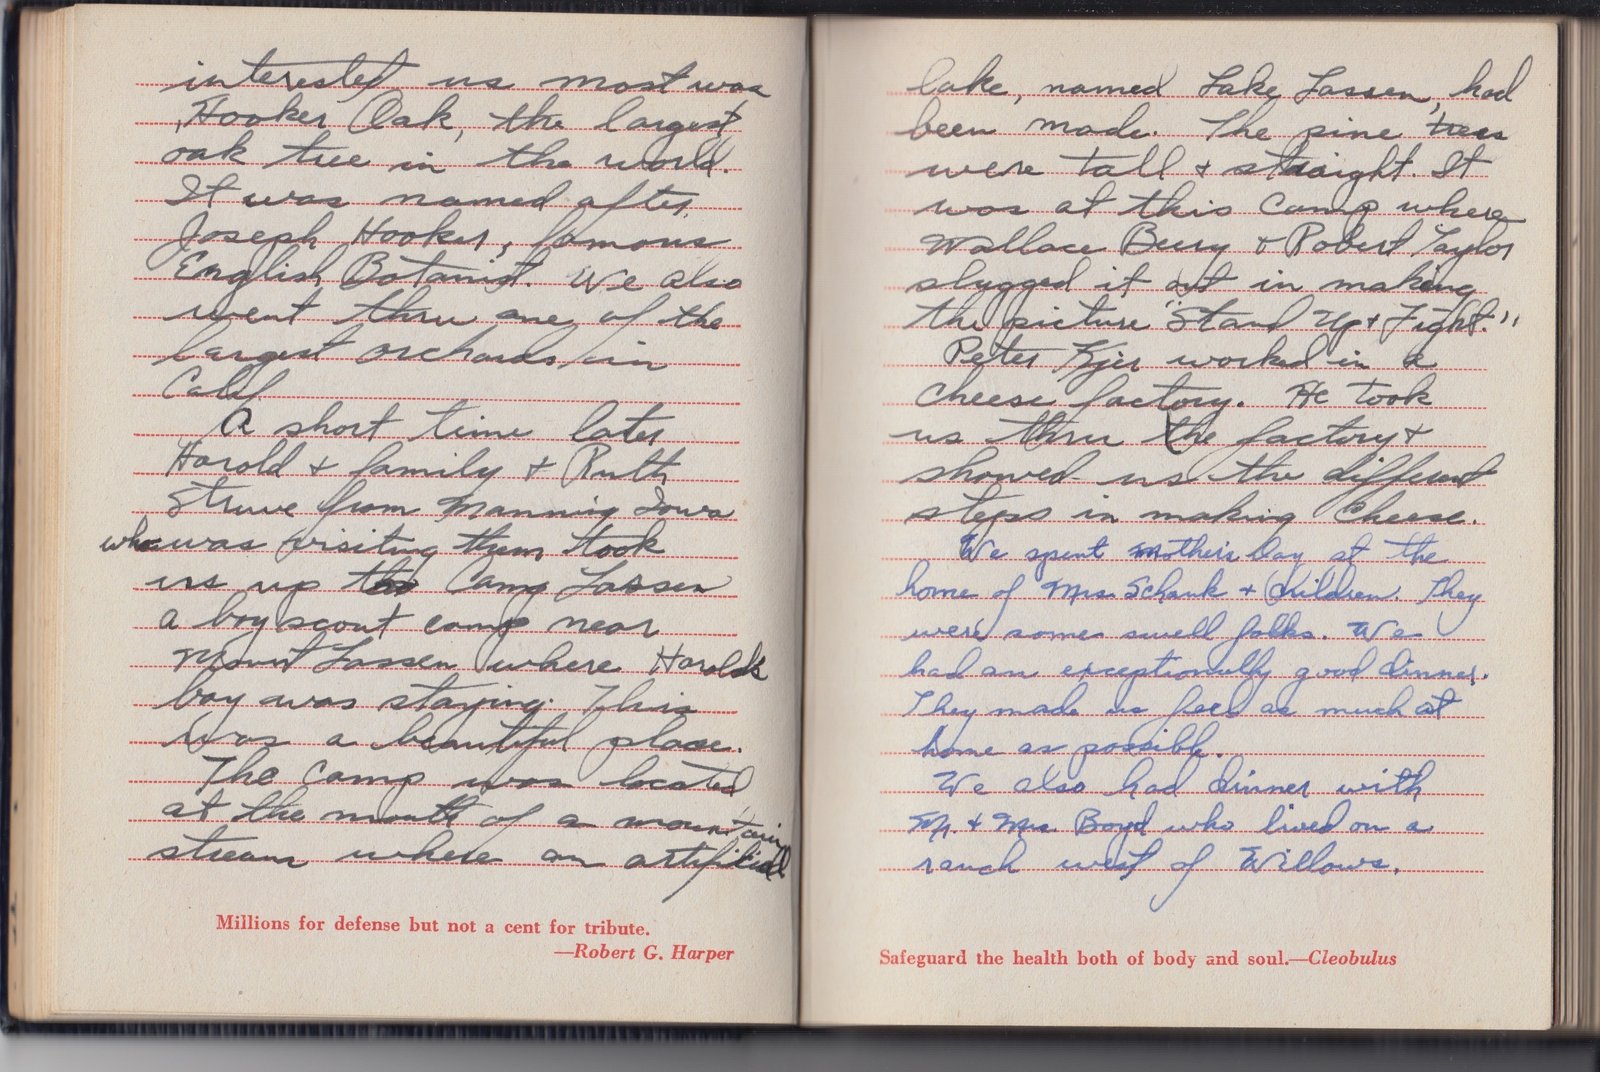 interested us most was
Hooker Oak, the largest
oak tree in the world.
It was named after
Joseph Hooker, famous
English Botanist. We also
went thru one of the
largest orchards in
Calif
A short time later
Harold + family + Ruth
Struve from Manning Iowa
who was visiting them took
us up to Camp Lassen
a boy scout camp near
Mount Lassen where Harolds
boy was staying. This
was a beautiful place.
The camp was located
at the mouth of a mountain
stream where an artificial
Millions for defense but not a cent for tribute.
—Robert G. Harper
lake, named Lake Lassen, had
been made. The pine trees
were tall + straight. It
was at this camp where
Wallace Beery + Robert Taylor
slugged it out in making
the picture "Stand Up + Fight."
Peter Kjer worked in a
cheese factory. He took
us thru the factory +
showed us the different
steps in making cheese.
We spent Mother's Day at the
home of Mrs. Schank + Children. They
were some swell folks. We
had an exceptionally good dinner.
They made us feel as much at
home as possible.
We also had dinner with
Mr. + Mrs. Boyd who lived on a
ranch west of Willows.
Safeguard the health both of body and soul.—Cleobulus